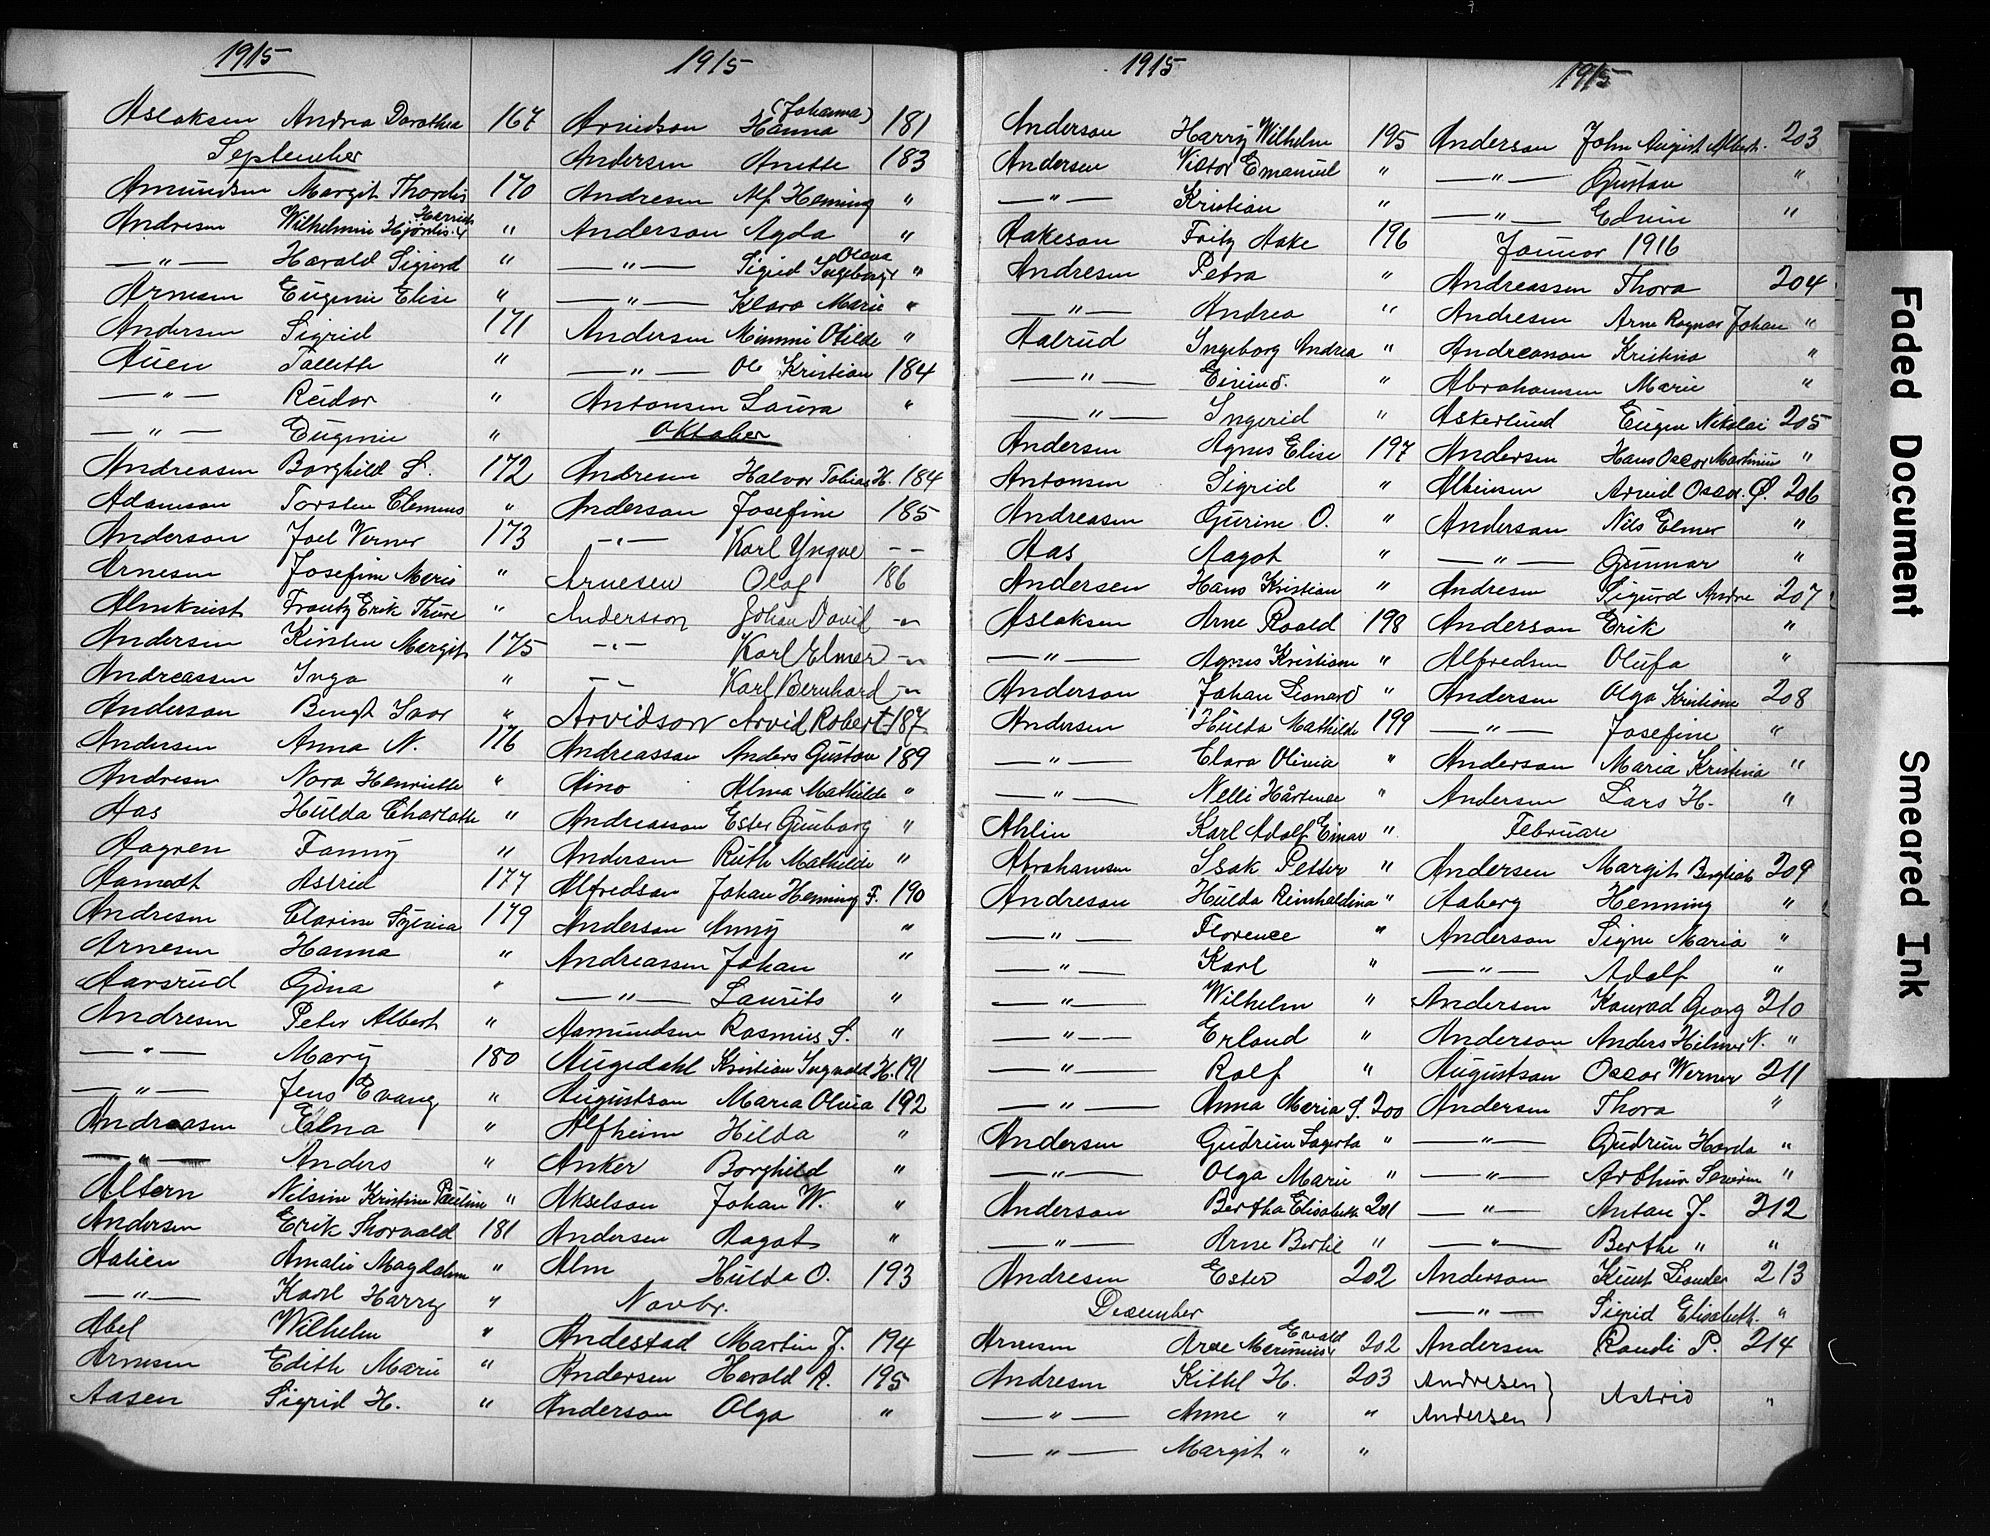 1915
Aslaksen Andrea Dorothea 167
September
Amundsen Margit Thordis 170
Andresen Wilhelmine Hjördis "
— " — Harald Sigurd "
Arnesen Eugenie Elise "
Andersen Sigrid 171
Auen Tallette "
— " — Reidar "
— " — Eugenie "
Andreasen Borghild S. 172
Adamson Torsten Clemens "
Anderson Joel Verner 173
Arnesen Josefine Marie "
Almkvist Frantz Erik Thure "
Andersen Kirsten Margit 175
Andreassen Inga "
Anderson Bengt Ivar "
Andersen Anna N. 176
Andresen Nora Henriette "
Aas Hulda Charlotte "
Aagren Fanny "
Aamodt Astrid 177
Andresen Clarine Sylvia 179
Arnesen Hanna "
Aavsrud Gina "
Andresen Peter Albert "
— " — Mary 180
— " — Jens Evang "
Andreasen Edna "
— " — Anders "
Altern Nilsine Kristine Pauline "
Andersen Erik Thorvald 181
Aalien Amalie Magdalene "
— " — Karl Harry "
Abel Wilhelm "
Arnesen Edith Marie "
Aasen Sigrid H. "
1915
Arvidson Hanna (Johanna) 181
Andersen Anette 183
Andresen Alf Henning "
Anderson Agda "
— " — Sigrid Ingeborg Olava "
— " — Klara Marie "
Andersen Mimmi Otilde "
— " — Ole Kristian 184
Antonsen Laura "
Oktober
Andresen Halvor Tobias H. 184
Anderson Josefine 185
— " — Karl Yngve — —
Arnesen Olaf 186
Andersson Johan David — " —
— " — Karl Elmer — " —
— " — Karl Bernhard — " —
Arvidson Arvid Robert 187
Andreasson Anders Gustav 189
Aino Alma Mathilde "
Andreasson Ester Gunborg "
Andersen Ruth Mathilde "
Alfredson Johan Henning F. 190
Anderson Anny "
Andreassen Johan "
— " — Laurits "
Aamundsen Rasmus S. "
Augedahl Kristian Ingvald H. 191
Augustson Maria Olivia 192
Alfheim Hilda "
Anker Borghild "
Akselson Johan W. "
Andersen Aagot "
Alm Hulda O. 193
Novbr.
Andestad Martin J. 194
Andersen Harald A. 195
Anderson Olga "
1915
Anderson Harry Wilhelm 195
Andersen Victor Emanuel "
— " — Kristian "
Aakeson Fritz Aake 196
Andresen Petra "
— " — Andrea "
Aalrud Ingeborg Andrea "
— " — Eivind. "
— " — Ingerid "
Andersen Agnes Elise 197
Antonsen Sigrid "
Andreasen Gurine O. "
Aas Aagot "
Andersen Hans Kristian "
Aslaksen Arne Roald 198
— " — Agnes Kristiane "
Anderson Johan Leonard "
Andersen Hulda Mathilde 199
— " — Clara Olivia "
— " — Nelli Hårtense "
Ahlin Karl Adolf Einar "
Abrahamsen Isak Petter "
Andreson Hulda Reinholdina "
— " — Florence "
— " — Karl "
— " — Wilhelm "
— " — Erland "
— " — Rolf "
— " — Anna Maria S. 200
Andersen Gudrun Lagerta "
— " — Olga Marie "
Anderson Bertha Elisabeth 201
— " — Arne Bertil "
Andresen Ester 202
December
Arnesen Arne Marinius Evald 202
Andresen Kittel H. 203
— " — Anne " "
— " — Margit " "
1915
Anderson John August Albert. 203
— " — Gustav "
— " — Edvin "
Januar 1916
Andreassen Thora 204
Andresen Arne Ragnar Johan "
Andreasson Kristina "
Abrahamsen Marie "
Askerlund Eugen Nikolai 205
Andersen Hans Oscar Martinius "
Albinsen Arvid Oscar. Ø. 206
Anderson Nils Elmer "
— " — Gunnar "
Andresen Sigurd Andre 207
Anderson Erik "
Alfredsen Olufa "
Andersen Olga Kristiane 208
— " — Josefine "
Anderson Maria Kristina "
Andersen Lars H. "
Februar
Andersen Margit Bergliot 209
Aaberg Henning "
Anderson Signe Maria "
— " — Adolf "
Andersen Konrad Georg 210
Anderson Anders Hilmer N. "
Augustson Oscar Werner 211
Andersen Thora "
— " — Gudrun Harda "
— " — Arthur Severin "
— " — Anton J. 212
— " — Berthe " "
Anderson Knut Leander 213
— " — Sigrid Elisabeth. "
Andersen Randi P. 214
Andresen } Astrid "
Andersen }
Faded Document
Smeared Ink